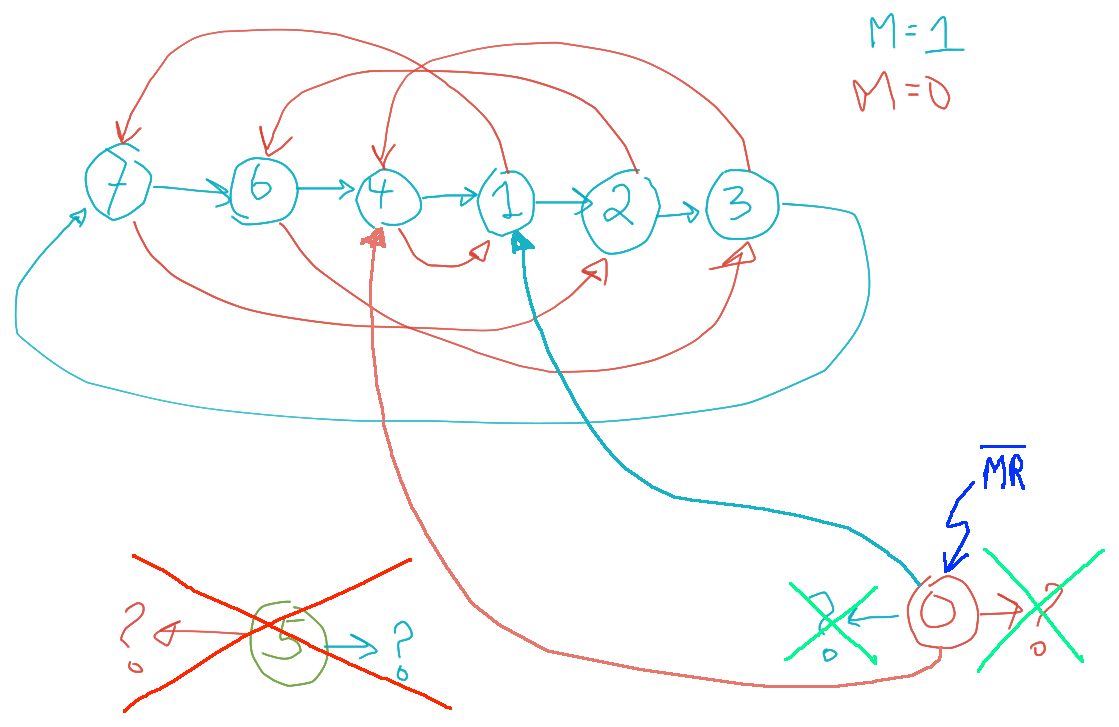 M=1
M=0
7 6 4 1 2 3
MR
? 5 ? ? 0 ?